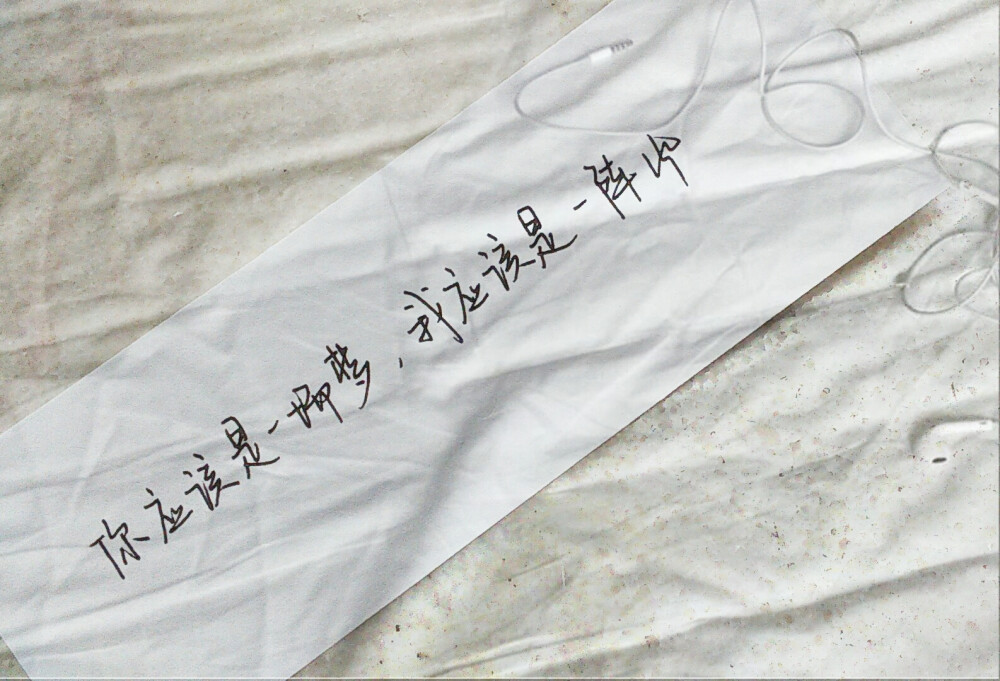 你应该是一梦,我应该是一阵